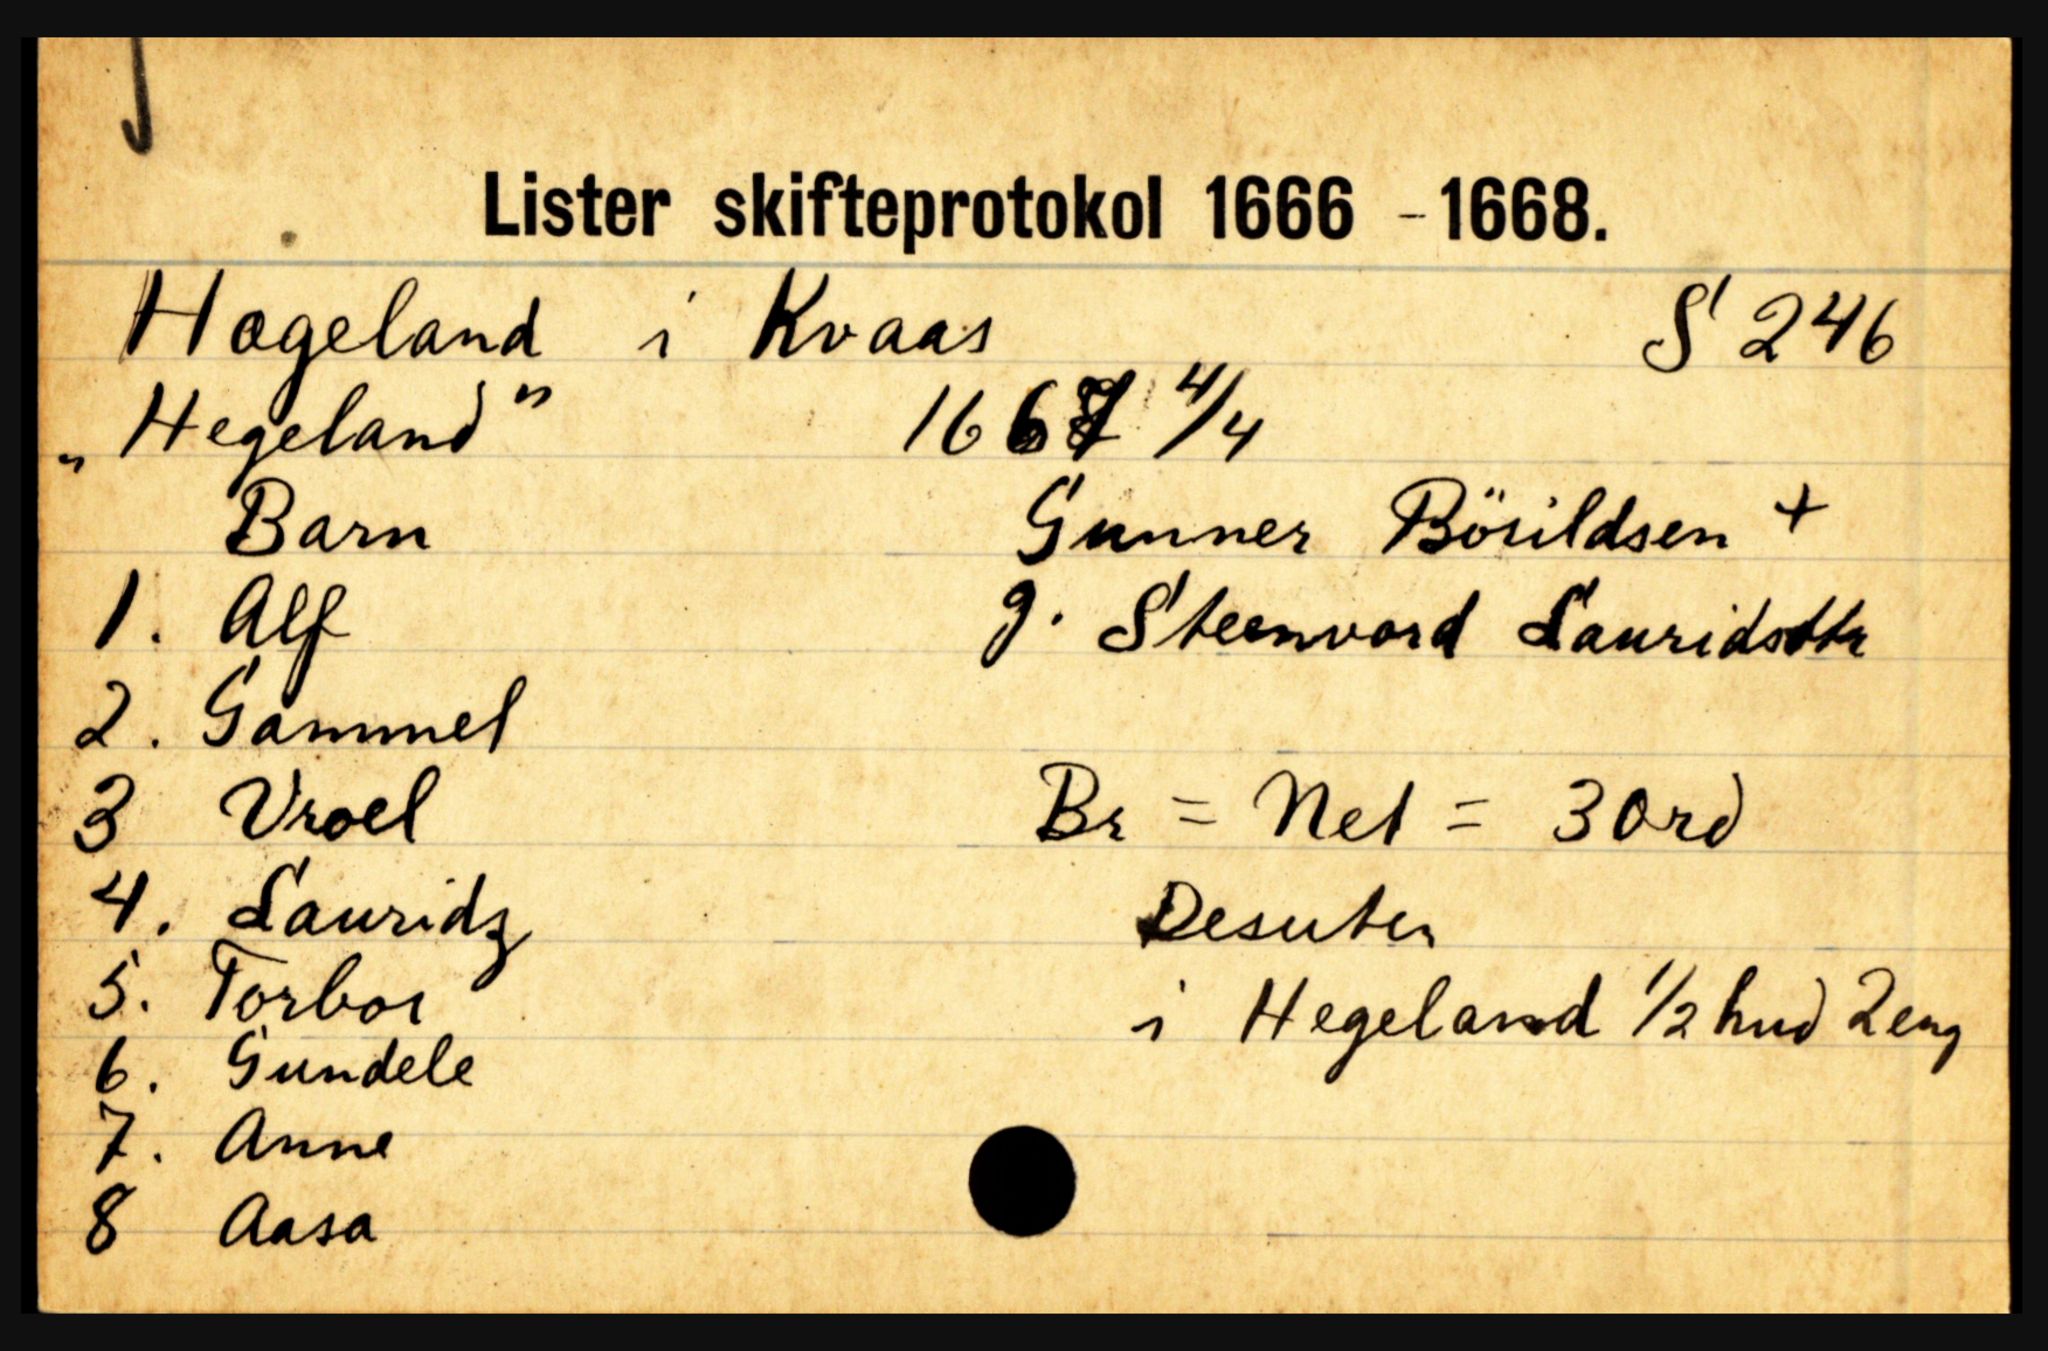 Lister skifteprotokol 1666 - 1668.
Hægeland i Kvaas S 246
„Hegeland” 1667 4/4
Barn Gunner Börildsen +
1. Alf g. Steenvord Lauridsttr
2. Gammel
3 Vroel Br = Net = 30rd
4. Lauridz Desuten
5. Torbor i Hegeland 1/2 hud 2 eng
6. Gundele
7. Anne
8 Aasa